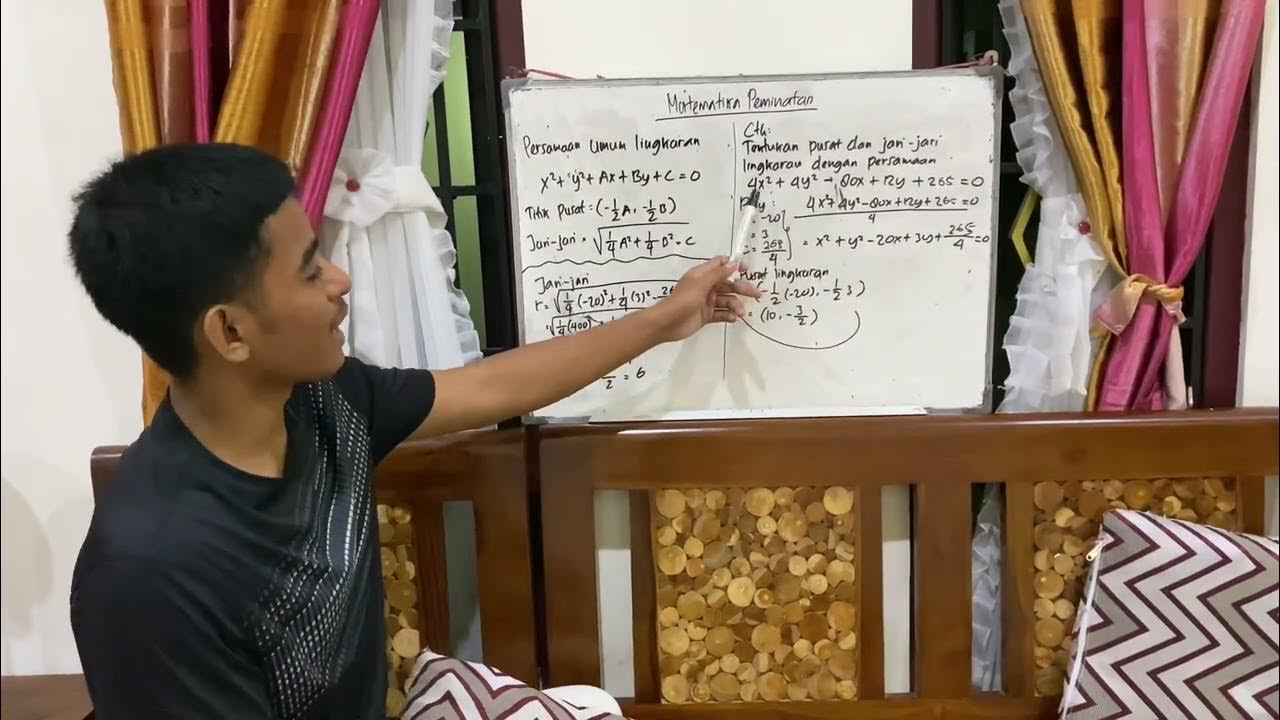 Matematika Peminatan
Persamaan Umum lingkaran
x²+ y²+ Ax+By+C=0
Titik Pusat=(-½A, -½B)
Jari-jari=√¼A²+¼B²-C
Jari-jari
r=√¼(-20)²+¼(3)²-
=√¼(400)
2 = 6
Cth:
Tentukan pusat dan jari-jari
lingkaran dengan persamaan
4x²+ 4y² - 80x+12y + 265 =0
4x²+4y²-80x+12y+265 =0
4
-20
= 3
= 265/4
= x²+y²-20x+3y+265/4=0
Pusat lingkaran
-½(-20), -½3)
= (10, -3/2)